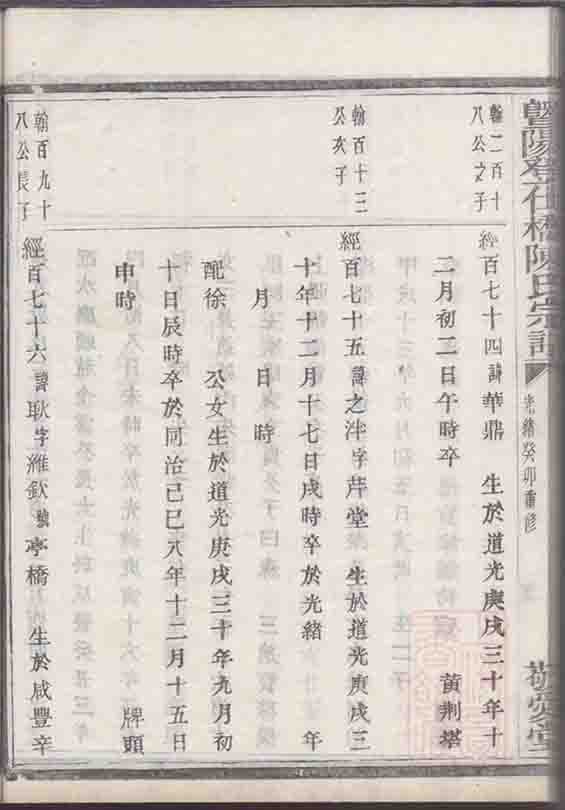 暨陽登仕橋陳氏宗譜 光緒癸卯重修 敬愛堂
翰二百十
八公之子
經百七十四諱華鼎 生於道光庚戌三十年十
二月初二日午時卒 黃荆塔
翰百十三
公亥子
經百七十五諱之泮字芹堂 生於道光庚戌三
十年十二月十七日戌時卒於光緒 年
月 日 時
配徐 公女生於道光庚戌三十年九月初
十日辰時卒於同治己巳八年十二月十五日
申時 牌頭
翰百九十
八公長子
經百七十六諱耿字維欽號亭橋 生於咸豐辛